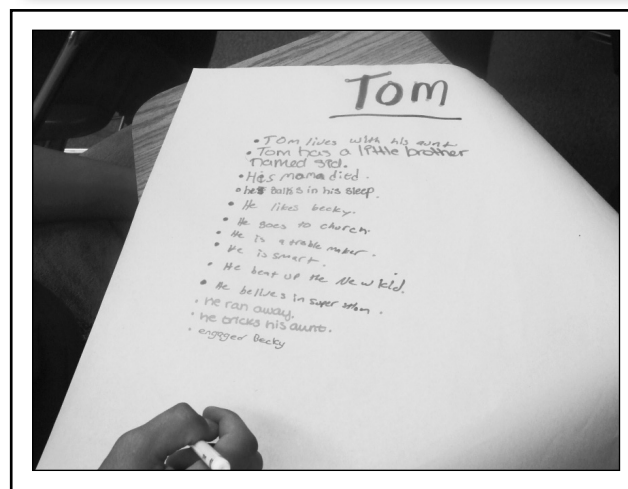 Tom
• Tom lives with his aunt
• Tom has a little brother
named sid.
• His mama died.
• he talks in his sleep.
• He likes becky.
• He goes to church.
• He is a trable maker.
• He is smart.
• He beat up the New kid.
• He belives in super stion.
• he ran away.
• he tricks his aunt.
• engaged Becky